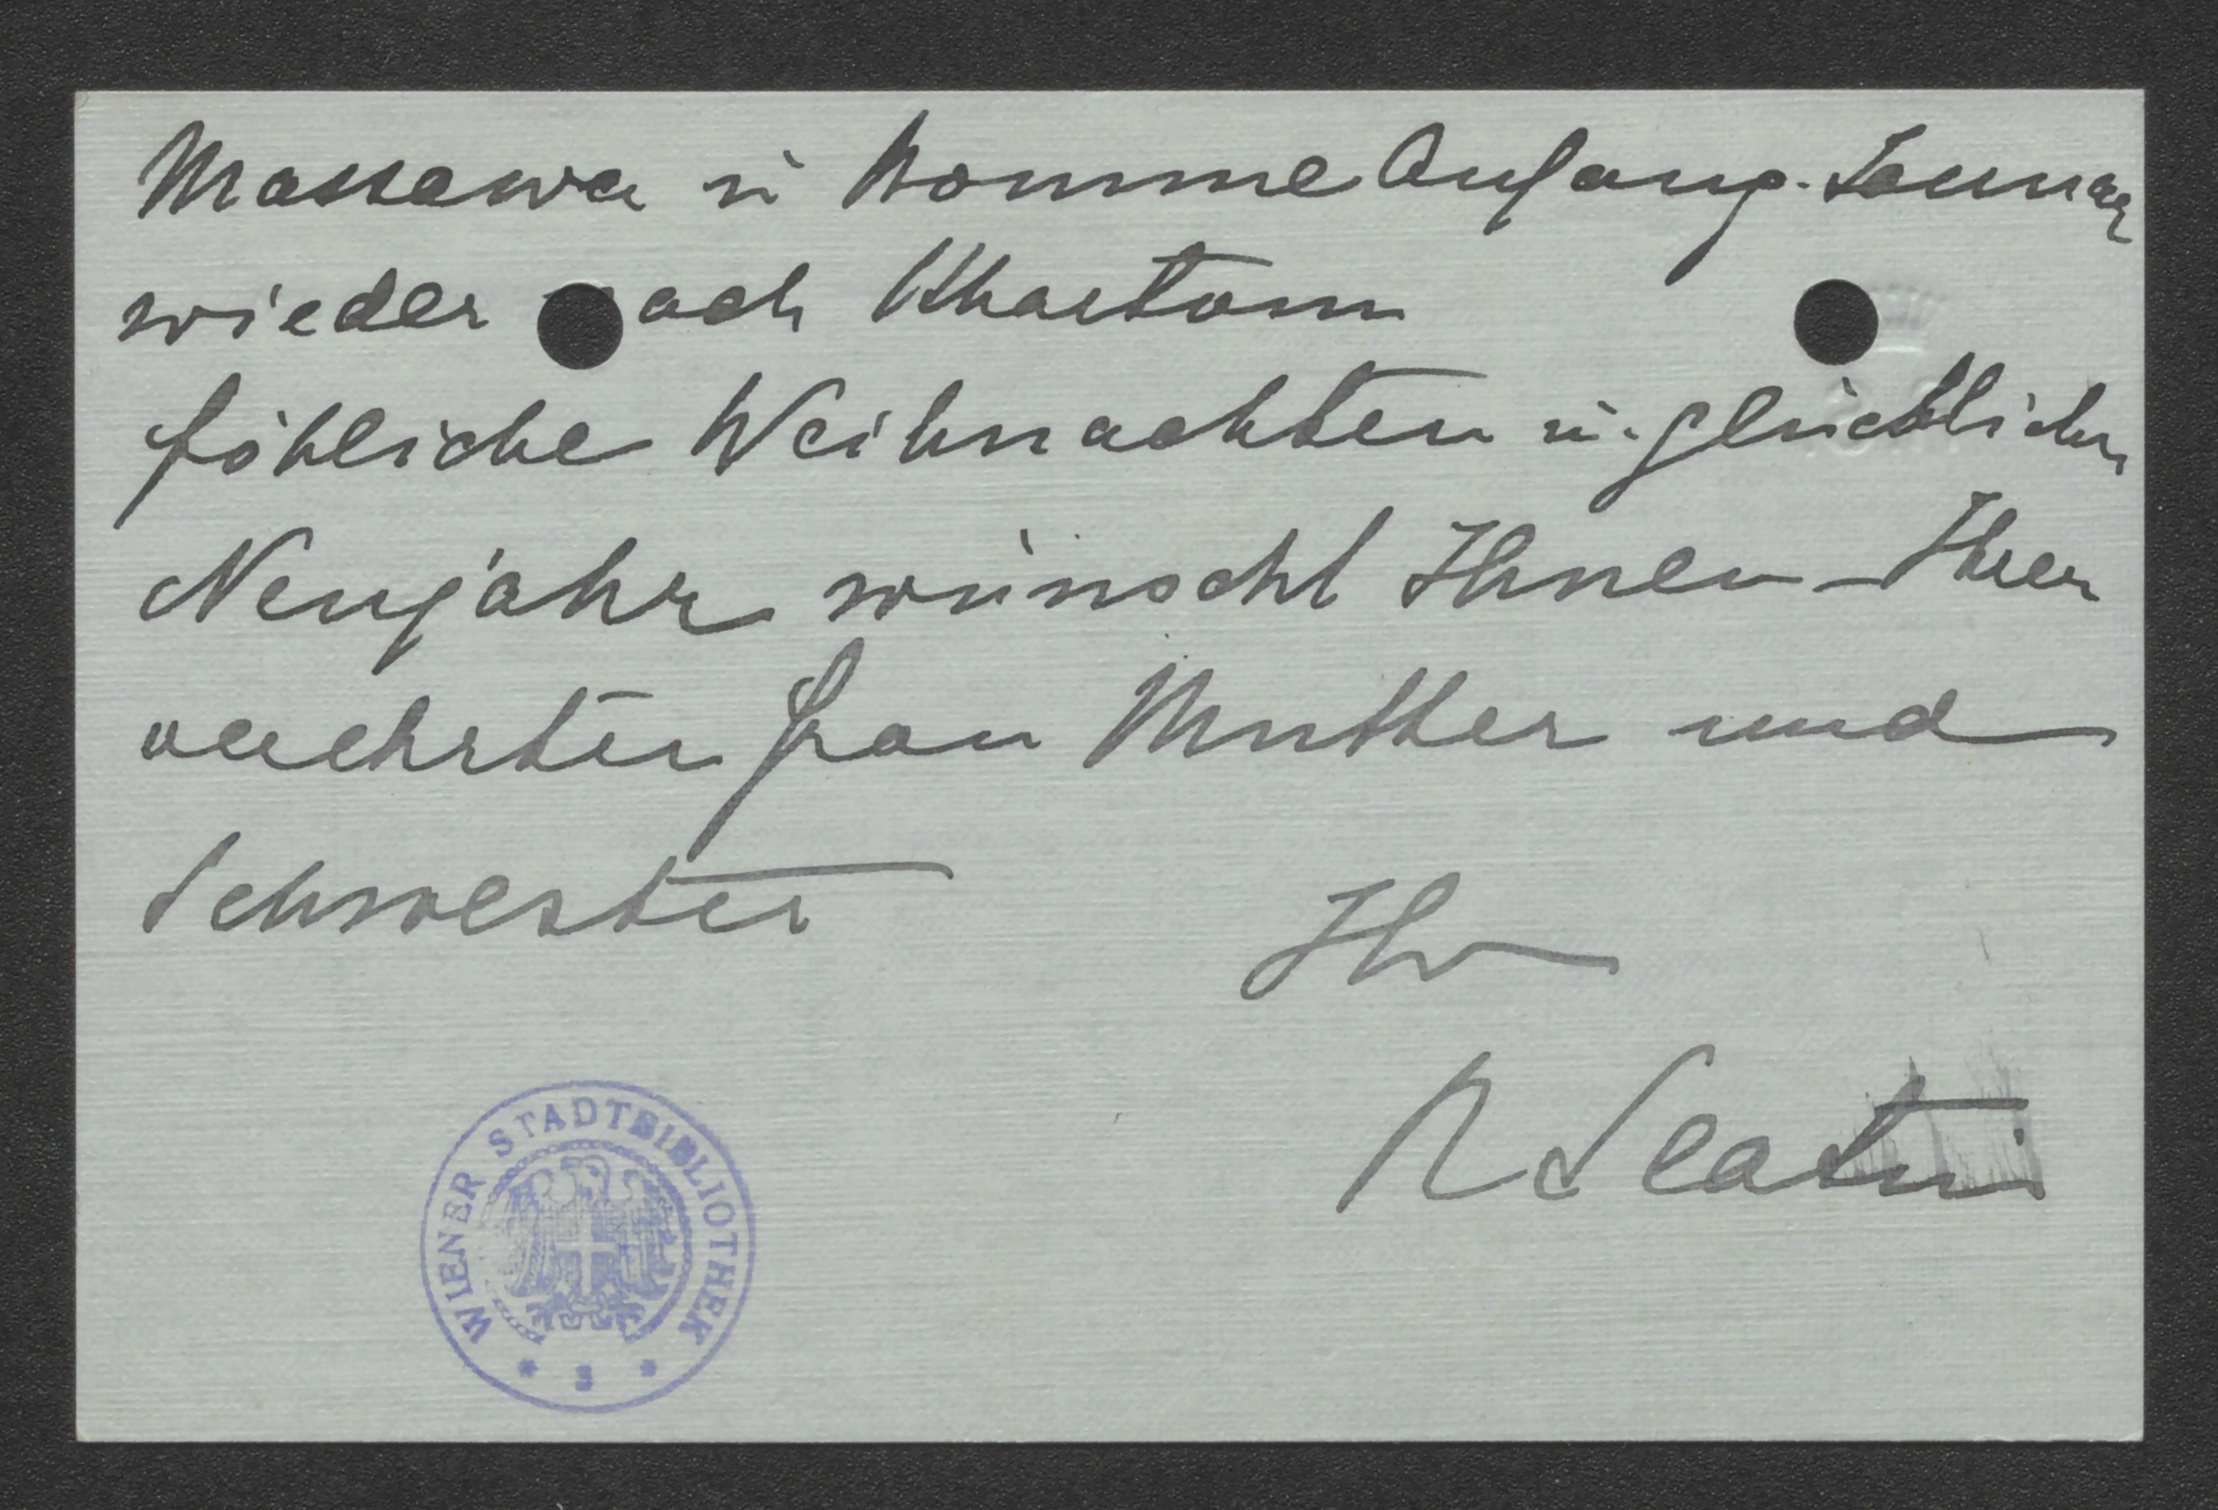 Massawa u komme Anfang Jannar
wieder nach Khartom
föhliche Weihnachten u. glücklichs
Neujahr wünscht Ihnen – Ihrer
verehrten Frau Mutter und
Schwester Ihr
R Slatin
WIENER STADTBIBLIOTHEK